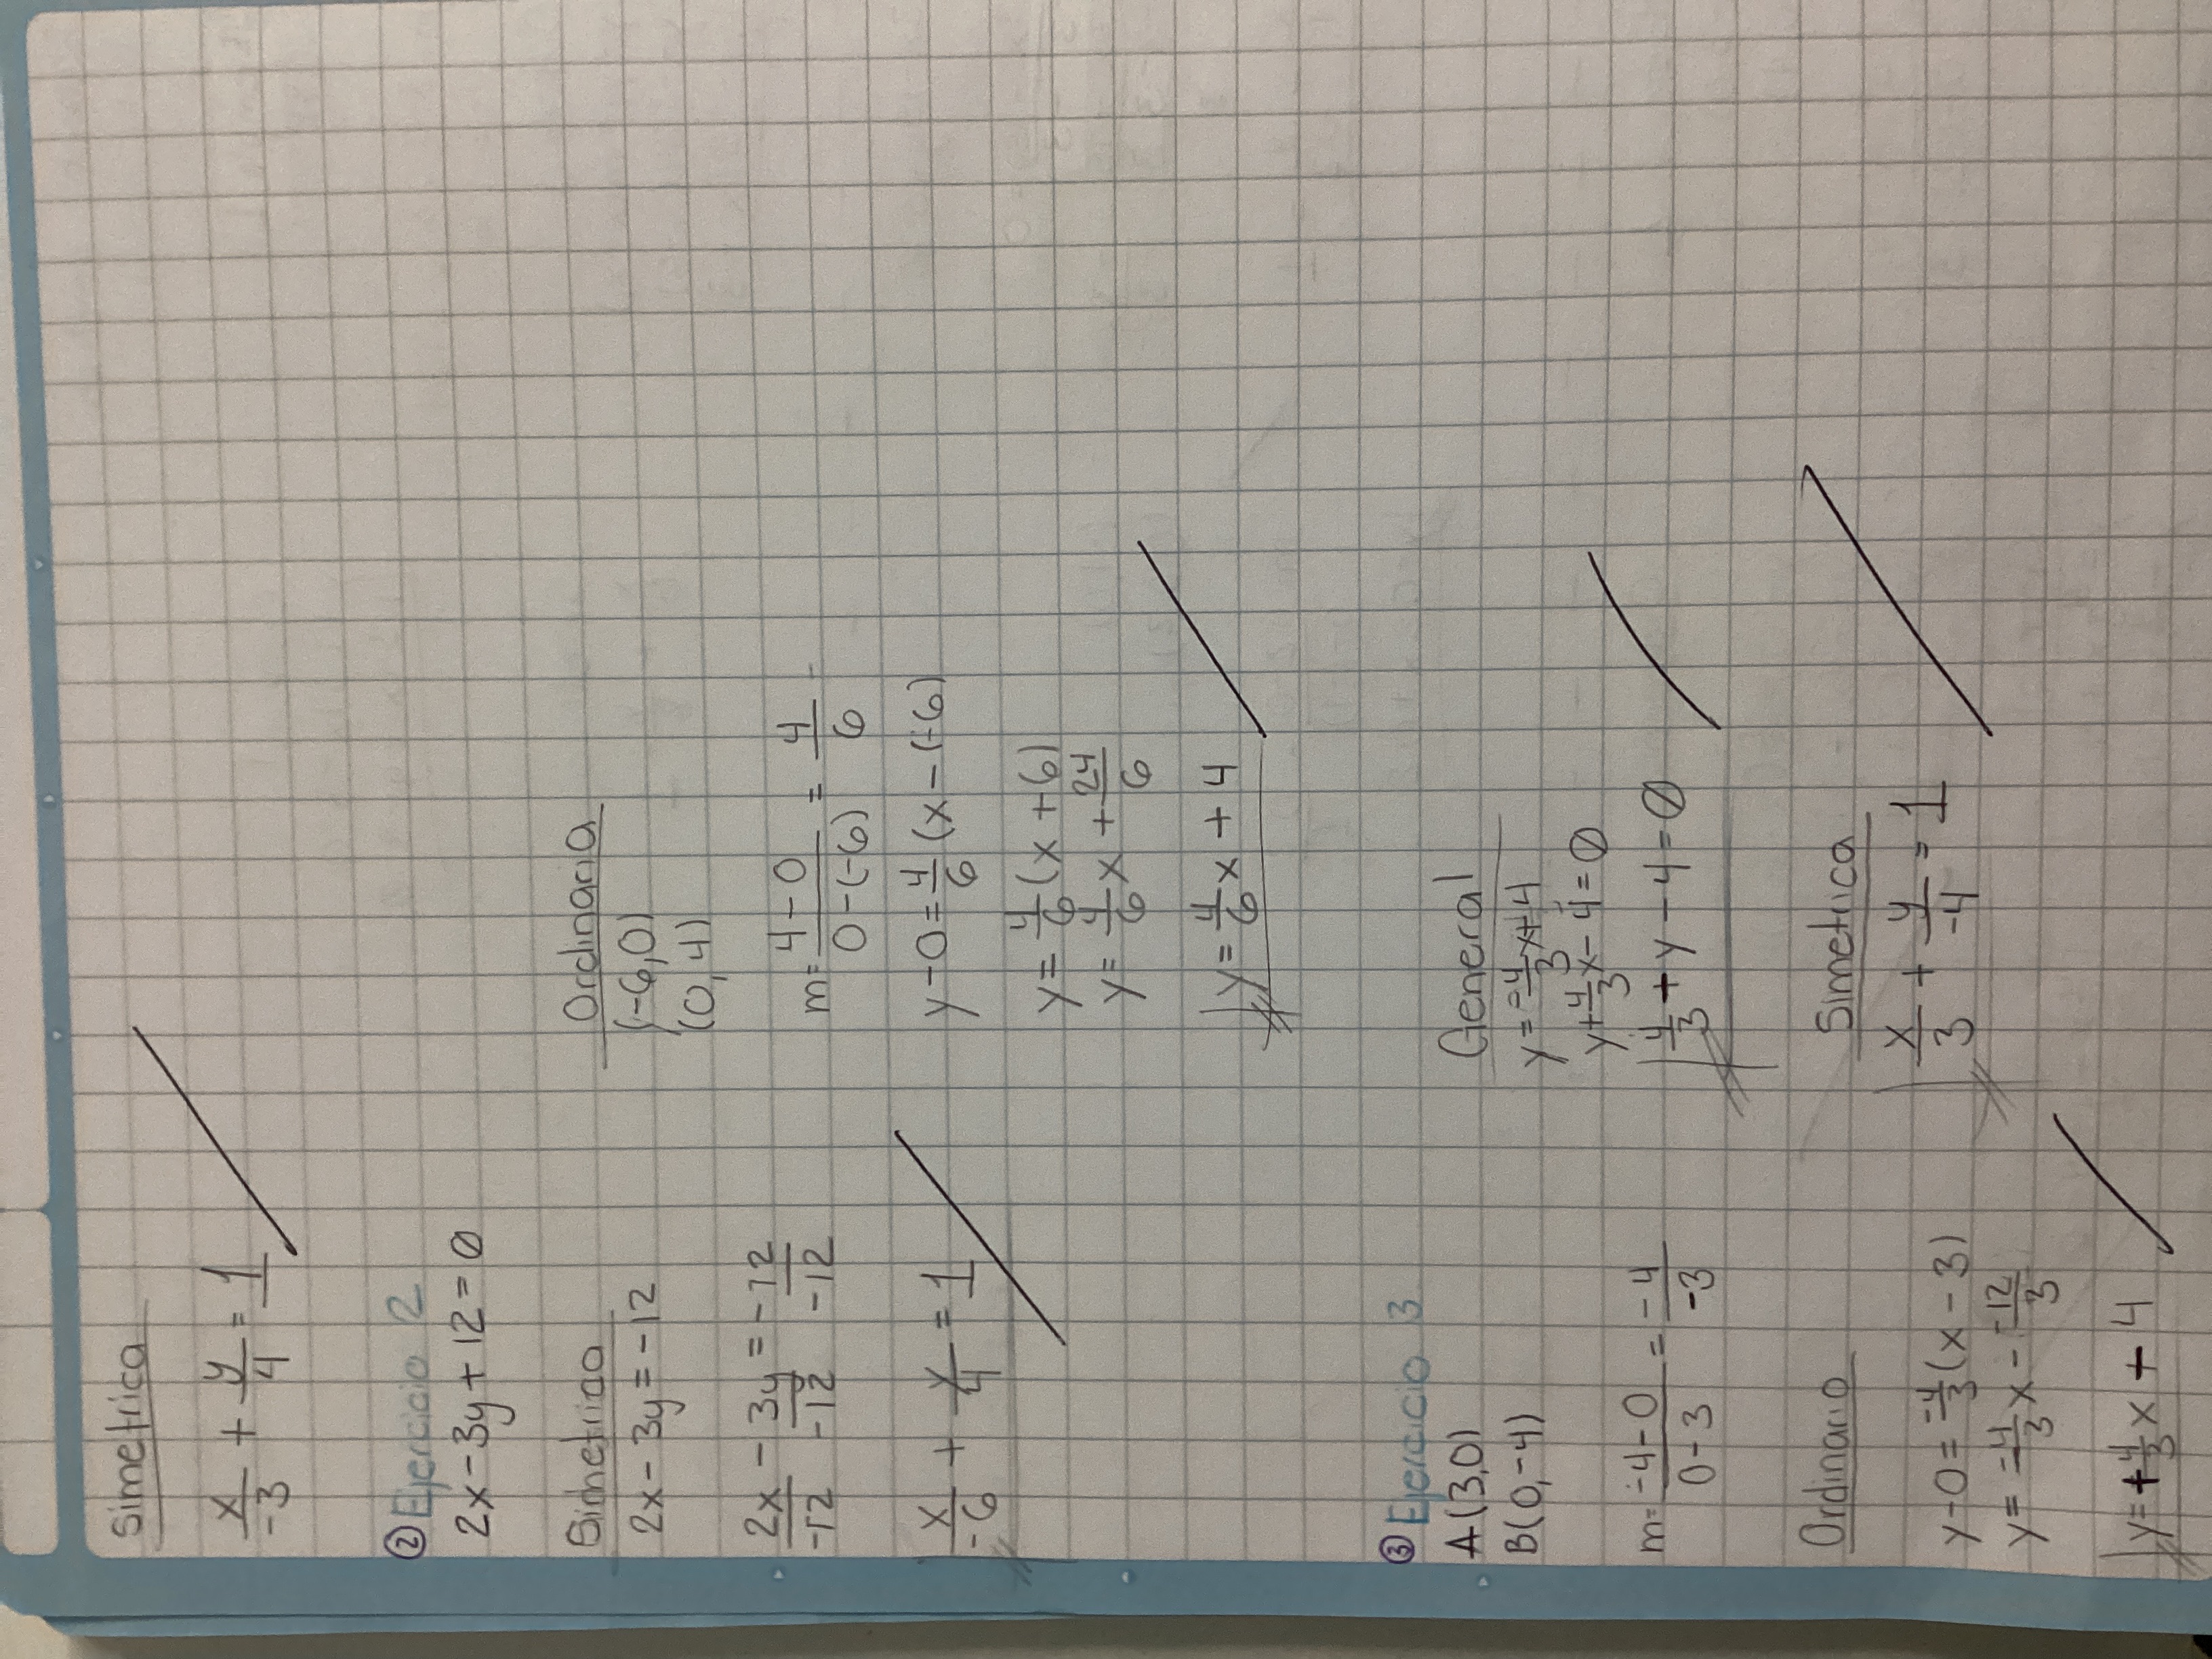 Simetrica
x/-3 + y/4 = 1
② Ejercicio 2
2x - 3y + 12 = 0
Simetrica
2x - 3y = -12
2x/-12 - 3y/-12 = -12/-12
x/-6 + y/4 = 1
Ordinaria
(-6,0)
(0,4)
m= 4-0/0-(-6) = 4/6
y-0=4/6(x-(-6)
y=4/6(x+6)
y=4/6x+24/6
y=4/6x+4
③ Ejercicio 3
A(3,0)
B(0,-4)
m= -4-0/0-3 = -4/-3
Ordinario
y-0=-4/3(x-3)
y=-4/3x--12/3
y=+4/3x+4
General
y=-4/3x+4
y+4/3x-4=0
4/3+y-4=0
Simetrica
x/3 + y/-4 = 1